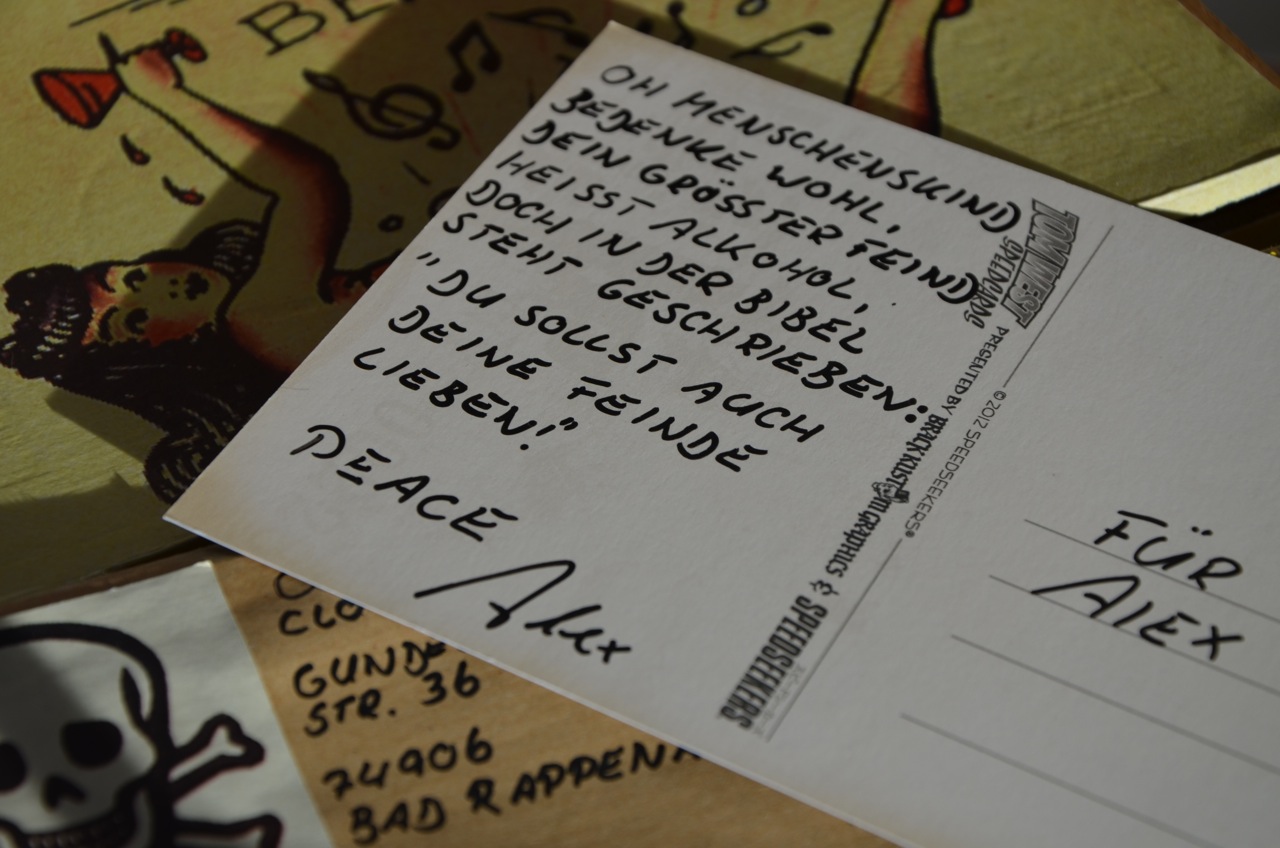 BE
OH MENSCHENSKIND
BEDENKE WOHL,
DEIN GRÖSSTER FEIND
HEISST ALKOHOL,
DOCH IN DER BIBEL
STEHT GESCHRIEBEN:
"DU SOLLST AUCH
DEINE FEINDE
LIEBEN!"
PEACE
Alex
MOONWEST
PRESENTED BY BRACK KUSTOM GRAPHICS & SPEEDSEEKERS
©2012 SPEEDSEEKERS®
FÜR
ALEX
CLO
GUNDE
STR. 36
74906
BAD RAPPENA